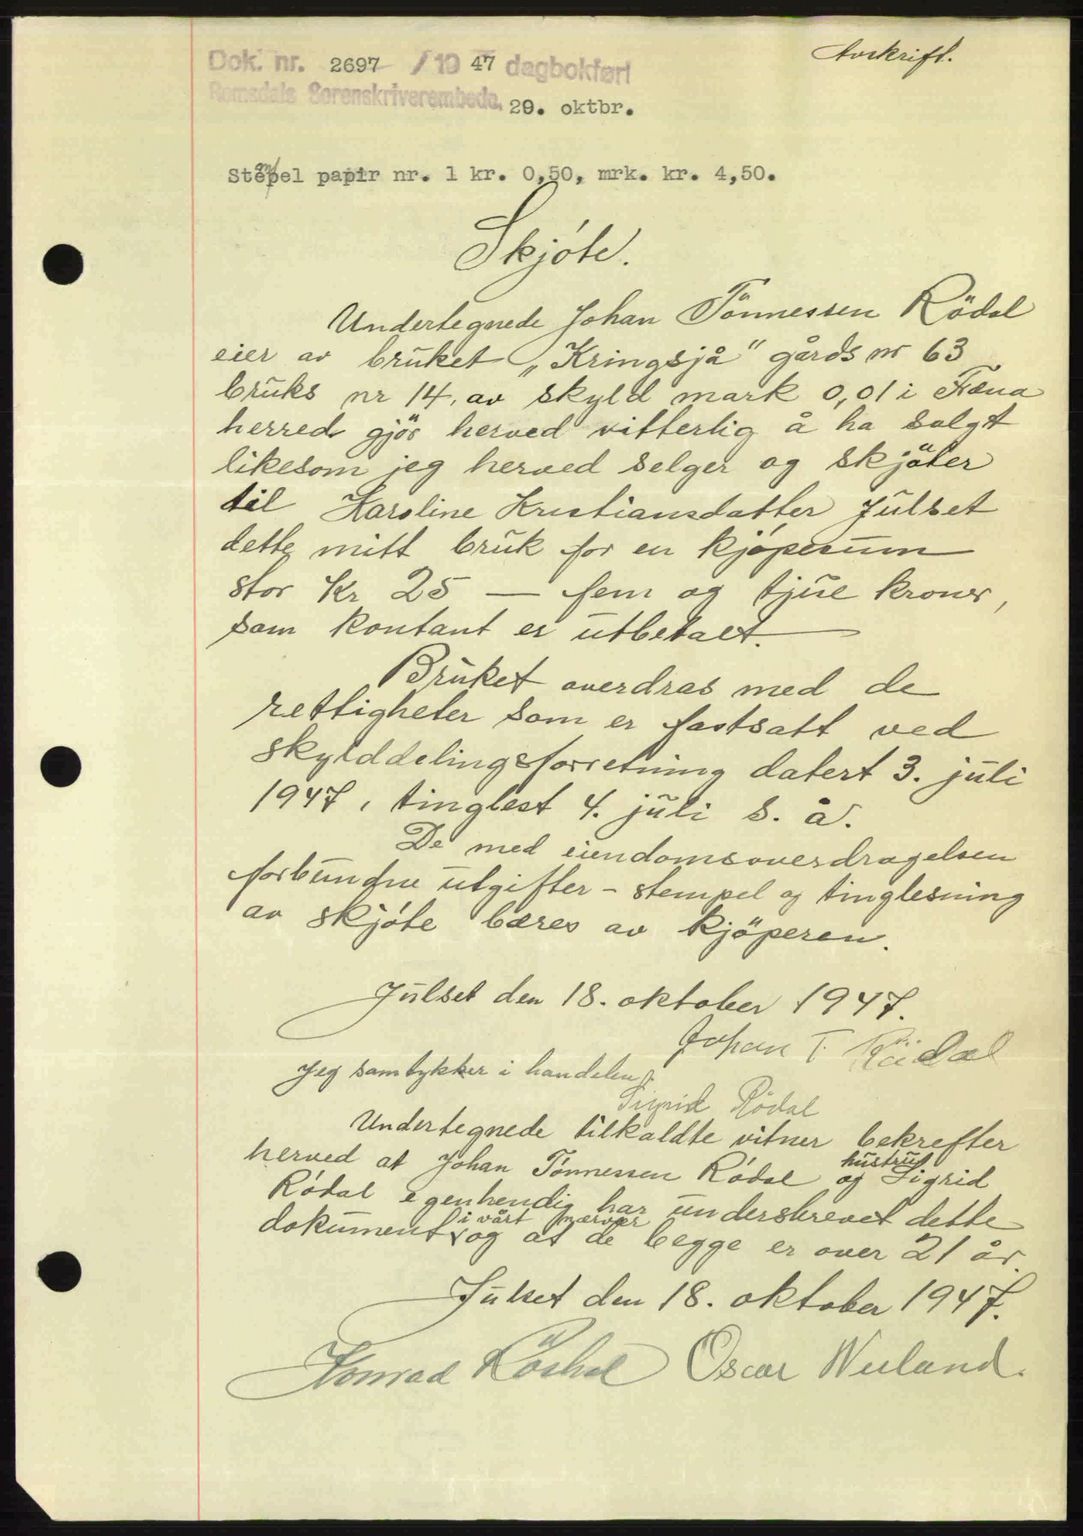 Avskrift.
Dok. nr. 2697 / 19 47 dagbokført
Romsdals Sorenskriverembede. 29. oktbr.
Stempel papir nr. 1 kr. 0,50, mrk. kr. 4,50.
Skjóte.
Undertegnede Johan Tönnessen Rödal
eier av bruket „Kringsjå" gårds nr 63
bruks nr 14, av skyld mark 0,01 i Fræna
herred gjör herved vitterlig å ha solgt
likesom jeg herved selger og skjöter
til Karoline Kristiansdatter Julset
dette mitt bruk for en kjöpesum
stor Kr 25 — fem og tjue kroner,
som kontant er utbetalt.
Bruket overdras med de
rettigheter som er fastsatt ved
skylddelingsforretning datert 3. juli
1947, tinglest 4. juli s. å.
De med eiendomsoverdragelsen
forbundne utgifter - stempel og tinglesning
av skjóte bæres av kjöperen.
Julset den 18. oktober 1947.
Johan T. Rödal
Jeg samtykker i handelen
Sigrid Rödal
Undertegnede tilkaldte vitner bekrefter
herved at Johan Tónnessen Ródal og hustru Sigrid
Ródal egenhendig har underskrevet dette
dokument i vårt nærvær og at de begge er over 21 år.
Julset den 18. oktober 1947.
Konrad Oscar